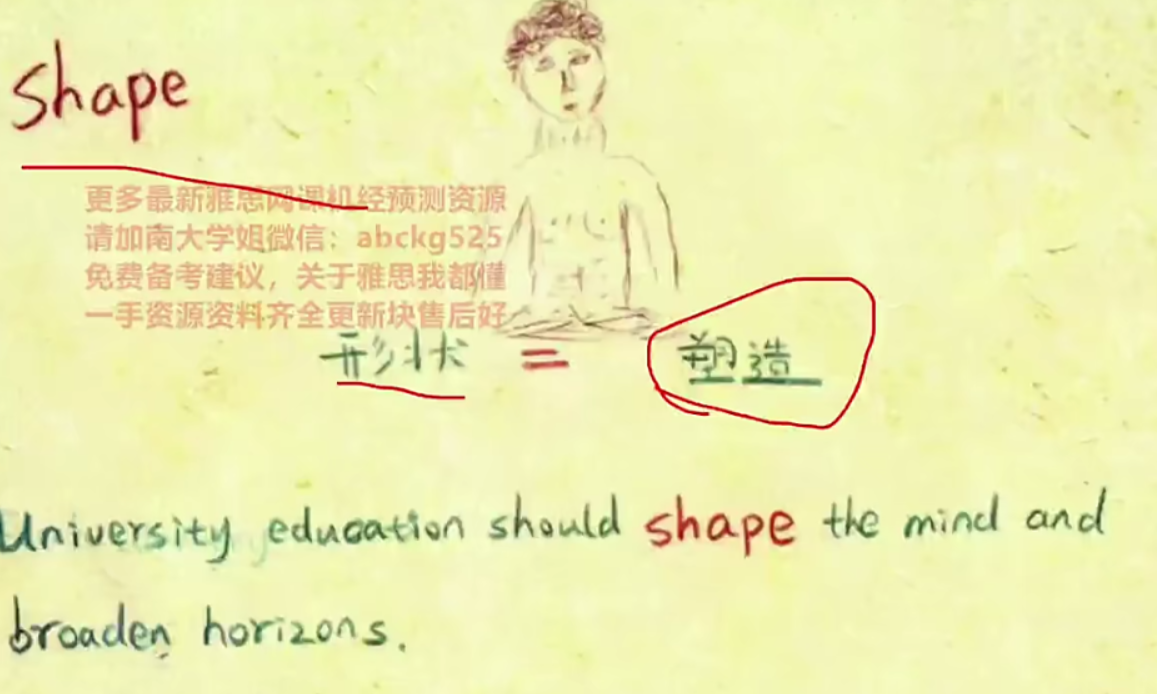 shape
更多最新雅思网课机经预测资源
请加南大学姐微信：abckg525
免费备考建议，关于雅思我都懂
一手资源资料齐全更新块售后好
形状 = 塑造
University education should shape the mind and
broaden horizons.